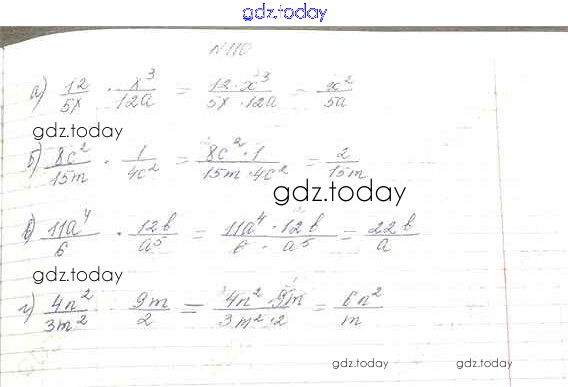 gdz.today
N110
а) 12/5x · x³/12a = 12·x³/5x·12a = x²/5a
gdz.today
б) 8c²/15m · 1/4c² = 8c²·1/15m·4c² = 2/15m
gdz.today
в) 11a⁴/6 · 12b/a⁵ = 11a⁴·12b/6·a⁵ = 22b/a
gdz.today
г) 4n²/3m² 9m/2 = 4n²·9m/3m²·2 = 6n²/m
gdz.today gdz.today gdz.today